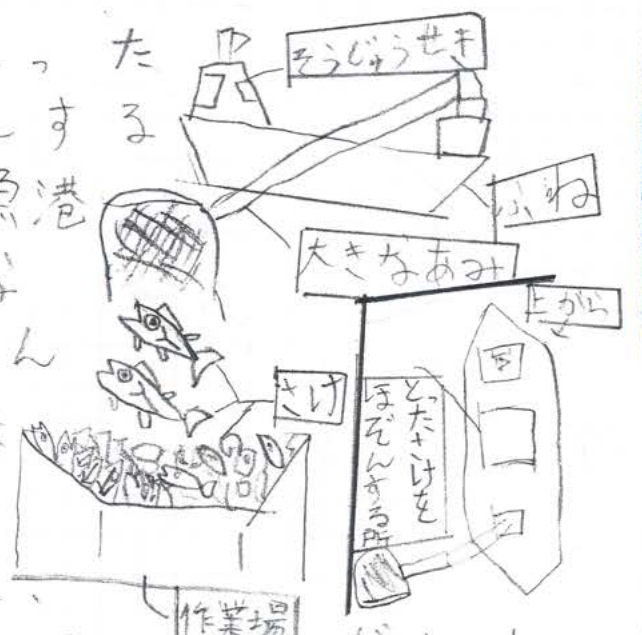 った
する
港
ん
そうじゅうせき
ふね
大きなあみ
上から
さけ
とったさけを
ほぞんする所
作業場